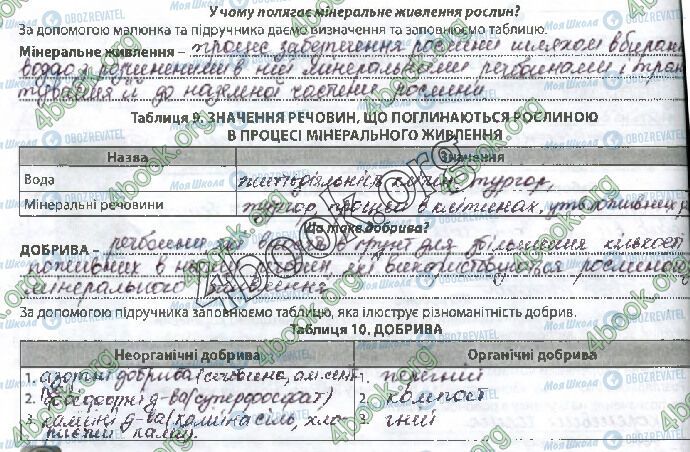 У чому полягає мінеральне живлення рослин?
За допомогою малюнка та підручника даємо визначення та заповнюємо таблицю.
Мінеральне живлення – процес забезпечення рослини шляхом вбирання
водою з розчиненими в ній мінеральними речовинами, тран
тування її до надземної частини рослини
Таблиця 9. ЗНАЧЕННЯ РЕЧОВИН, ЩО ПОГЛИНАЮТЬСЯ РОСЛИНОЮ
В ПРОЦЕСІ МІНЕРАЛЬНОГО ЖИВЛЕННЯ
Назва Значення
Вода тургор,
Мінеральні речовини тургор, процеси в клітинах,
Що таке добрива?
ДОБРИВА – речовини які в ґрунт для збільшення кількост
поживних в які використовуються рослиною
мінерального живлення
За допомогою підручника заповнюємо таблицю, яка ілюструє різноманітність добрив.
Таблиця 10. ДОБРИВА
Неорганічні добрива Органічні добрива
1. азотні добрива (сечовина, 1. перегній
2. фосфорні д-ва (суперфосфат) 2. компост
3. калійні д-ва (калійна сіль, хло 3. гній
ристий калій).
4book.org
Моя Школа OBOZREVATEL